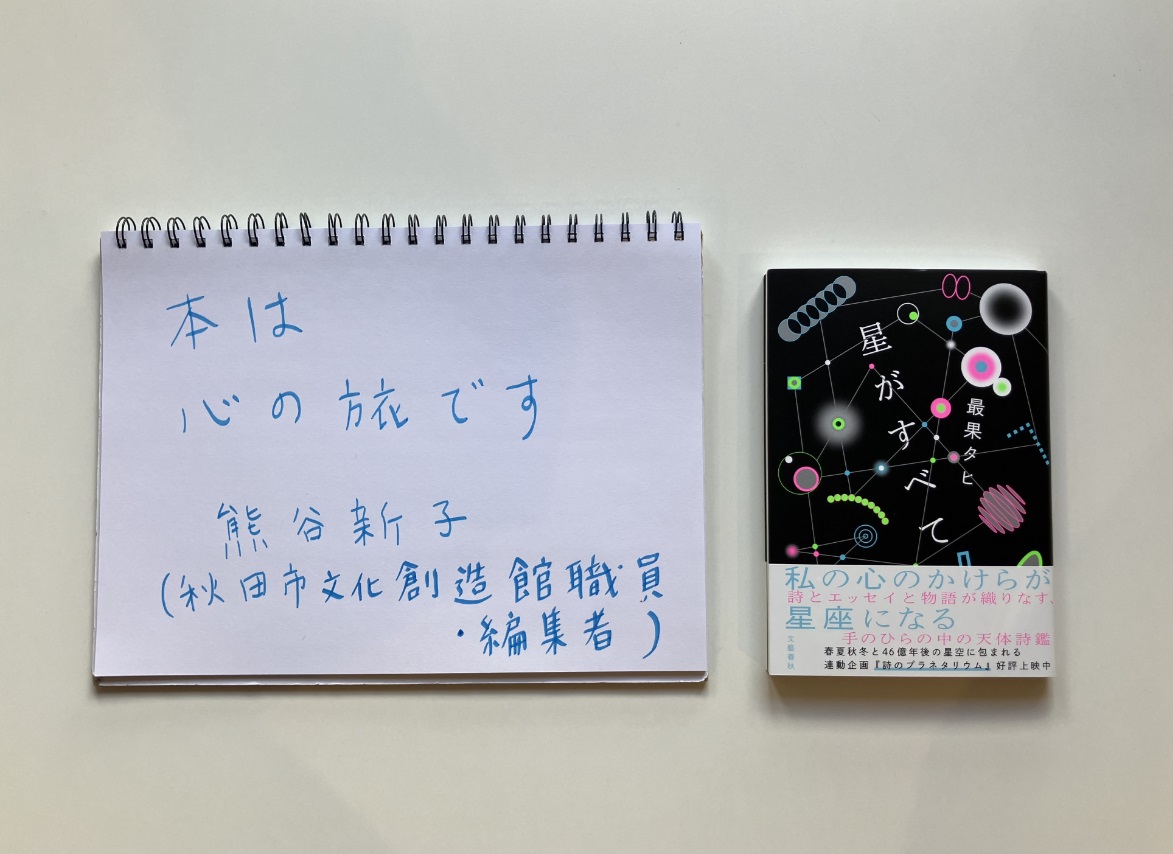 本は
心の旅です
熊谷新子
(秋田市文化創造館職員
・編集者)
星がすべて
最果タヒ
私の心のかけらが
詩とエッセイと物語が織りなす、
星座になる
手のひらの中の天体詩鑑
春夏秋冬と46億年後の星空に包まれる
連動企画『詩のプラネタリウム』好評上映中
文藝春秋